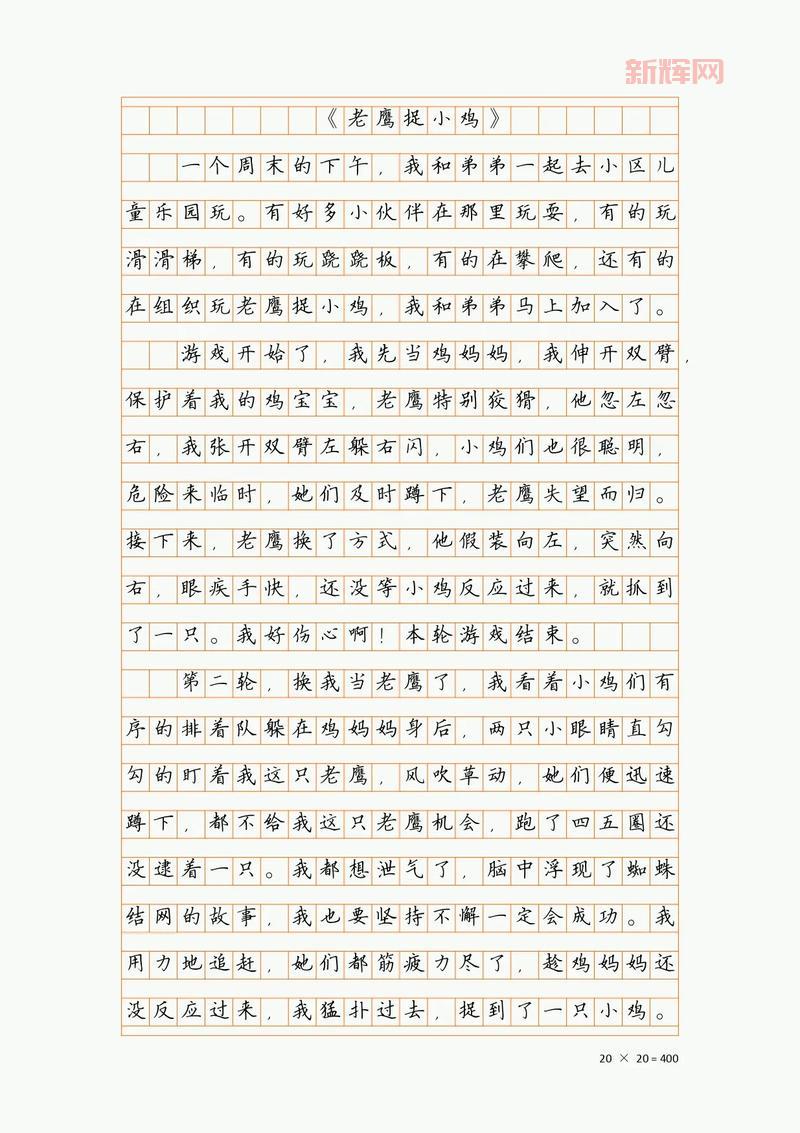 新辉网
《老鹰捉小鸡》
一个周末的下午，我和弟弟一起去小区儿
童乐园玩。有好多小伙伴在那里玩耍，有的玩
滑滑梯，有的玩跷跷板，有的在攀爬，还有的
在组织玩老鹰捉小鸡，我和弟弟马上加入了。
游戏开始了，我先当鸡妈妈，我伸开双臂，
保护着我的鸡宝宝，老鹰特别狡猾，他忽左忽
右，我张开双臂左躲右闪，小鸡们也很聪明，
危险来临时，她们及时蹲下，老鹰失望而归。
接下来，老鹰换了方式，他假装向左，突然向
右，眼疾手快，还没等小鸡反应过来，就抓到
了一只。我好伤心啊！本轮游戏结束。
第二轮，换我当老鹰了，我看着小鸡们有
序的排着队躲在鸡妈妈身后，两只小眼睛直勾
勾的盯着我这只老鹰，风吹草动，她们便迅速
蹲下，都不给我这只老鹰机会，跑了四五圈还
没逮着一只。我都想泄气了，脑中浮现了蜘蛛
结网的故事，我也要坚持不懈一定会成功。我
用力地追赶，她们都筋疲力尽了，趁鸡妈妈还
没反应过来，我猛扑过去，捉到了一只小鸡。
20 × 20=400